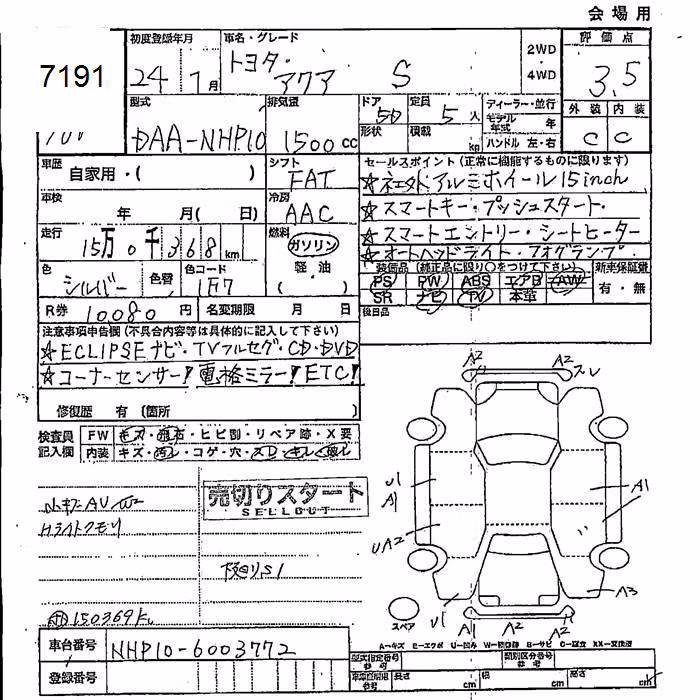 会場用
7191
初度登録年月
24 7月
車名・グレード
トヨタ・アクア S
2WD
・
4WD
評価点
3.5
型式
DAA-NHP10
排気量
1500 CC
ドア
5D
形状
定員
5 人
積載
kg
ディーラー・並行
モデル年式 年
ハンドル 左・右
外装 内装
C C
車歴
自家用・( )
車検
年 月( 日)
走行
15万0千368km
色
シルバー
色替
色コード
1F7
シフト
FAT
冷房
AAC
燃料
ガソリン
軽油
R券
10080円
名変期限 月 日
セールスポイント(正常に機能するものに限ります)
☆社外アルミホイール15inch
☆スマートキー・プッシュスタート・
☆スマートエントリー・シートヒーター
☆オートヘッドライト・フォグランプ・
装備品(純正品に限り○をつけて下さい)
PS PW ABS エアB AW
SR ナビ TV 本革
新車保証書
有・無
後日品
注意事項申告欄(不具合内容等は具体的に記入して下さい)
☆ECLIPSEナビ・TVフルセグ・CD・DVD
☆コーナーセンサー!電格ミラー!ETC!
修復歴 有(箇所 )
検査員記入欄
FW キズ・飛石・ヒビ割・リペア跡・X要
内装 キズ・汚レ・コゲ・穴・スレ・キレ・破レ
売切りスタート
SELLOUT
小キズAU/W2
Hライトクモリ
下回りS1
150369km
A2 A2 スレ
U1
A1
A1
UA2
U1
A3
スペア
A1 A2 A2
A-キズ E-エクボ U-凹み W-補修跡 S-サビ C-腐食 XX-交換済
車台番号
NHP10-6003772
登録番号
型式指定番号
参考
類別区分番号
参考
長さ cm
幅 cm
高さ cm